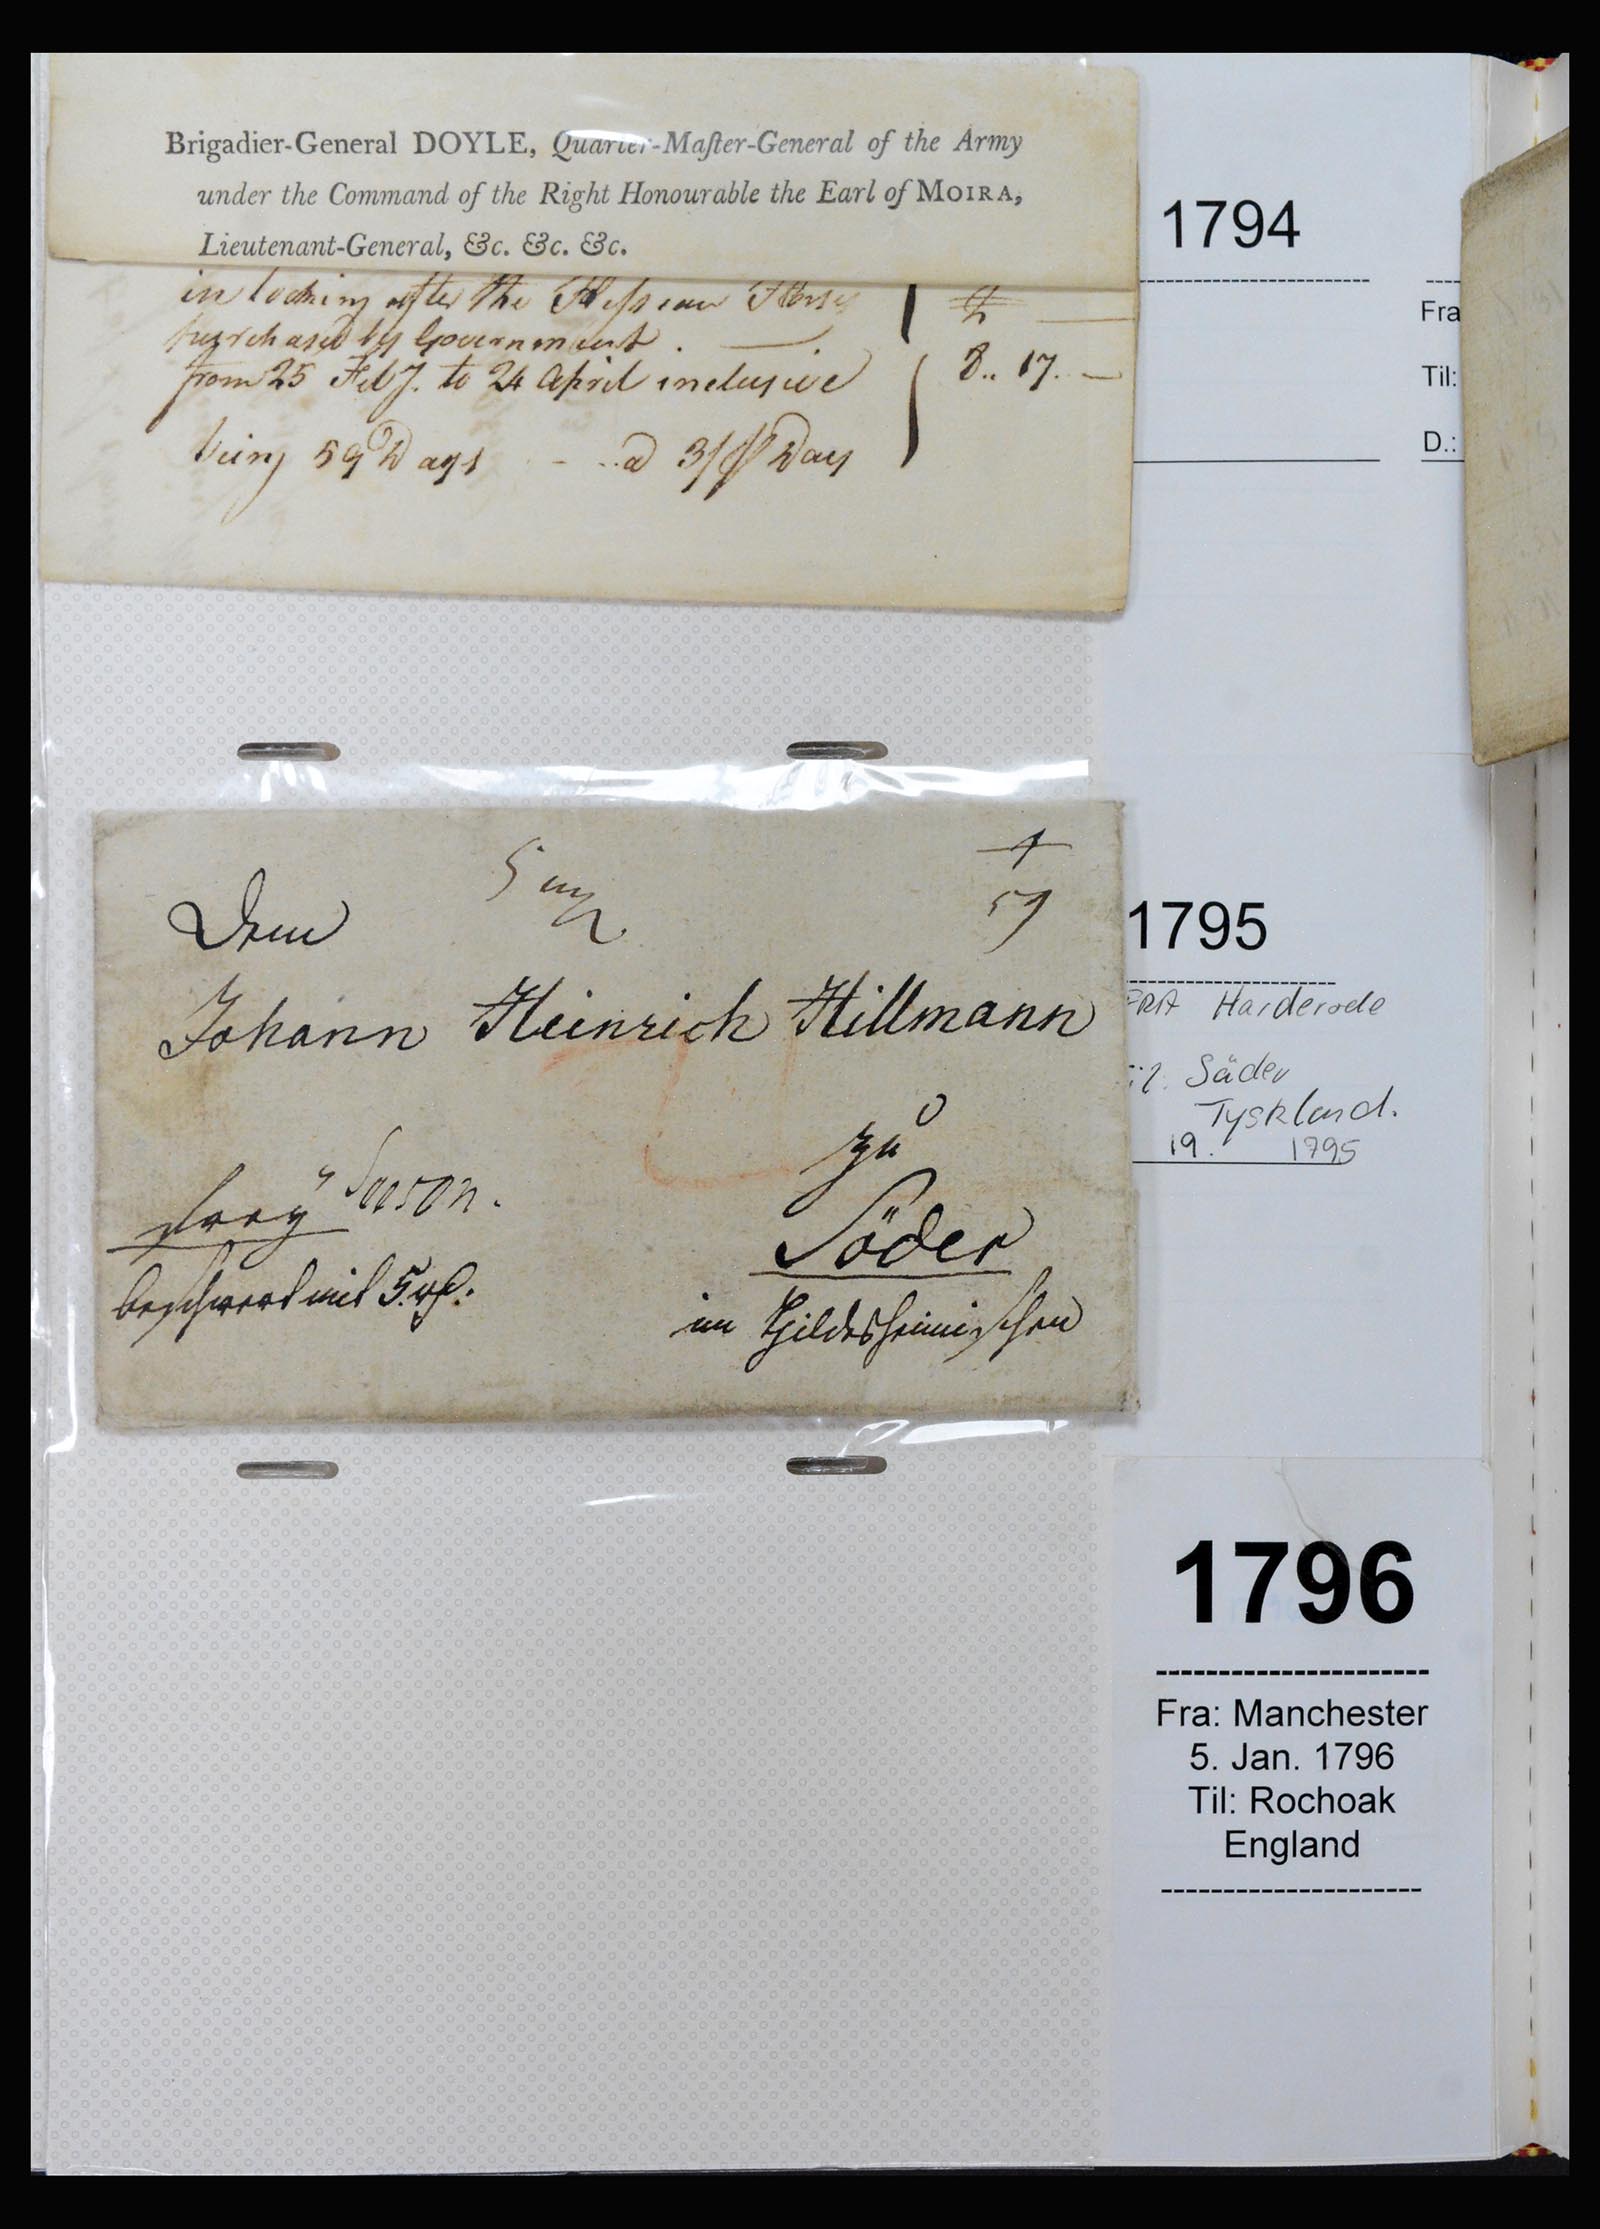 Brigadier-General DOYLE, Quarter-Maſter-General of the Army
under the Command of the Right Honourable the Earl of MOIRA,
Lieutenant-General, &c. &c. &c.
in looking after the Heſsian Horses
purchased by Government.
from 25 Feby. to 24 April inclusive
8.. 17. —
being 59 Days - .. a 3/ ⅌ Day
1794
Fra
Til:
D.:
Dem
59
Johann Heinrich Hillmann
zu
franz
Söder
beschwert mit 5
im Hildesheimischen
1795
FRA Harderode
Säder
Tyskland.
19. 1795
1796
Fra: Manchester
5. Jan. 1796
Til: Rochoak
England